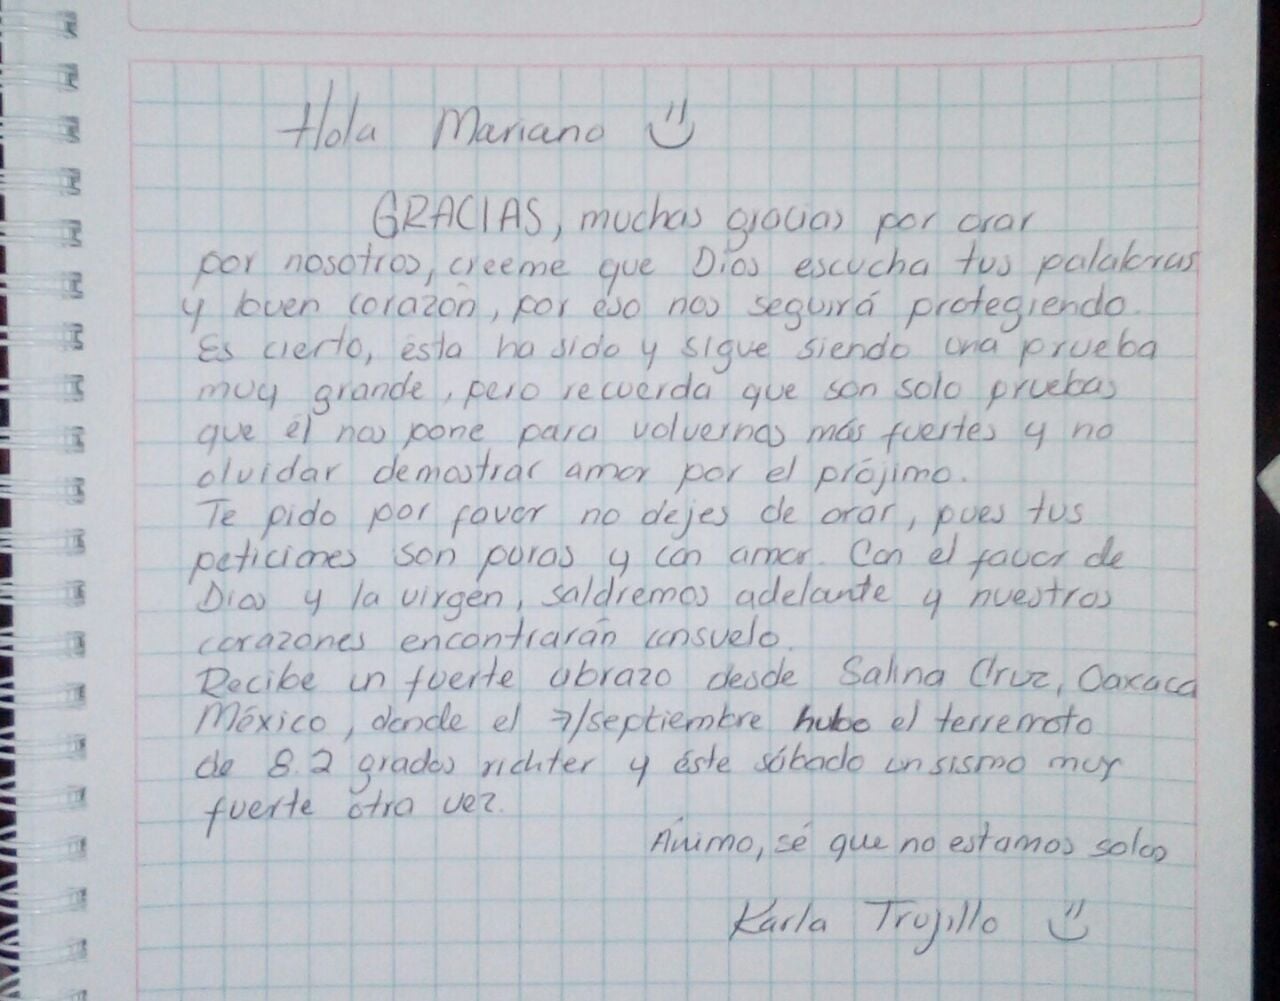 Hola Mariano
GRACIAS, muchas gracias por orar
por nosotros, creeme que Dios escucha tus palabras
y buen corazón, por eso nos seguirá protegiendo.
Es cierto, ésta ha sido y sigue siendo una prueba
muy grande, pero recuerda que son solo pruebas
que él nos pone para volvernos más fuertes y no
olvidar demostrar amor por el prójimo.
Te pido por favor no dejes de orar, pues tus
peticiones son puras y con amor. Con el favor de
Dios y la virgen, saldremos adelante y nuestros
corazones encontrarán consuelo.
Recibe un fuerte abrazo desde Salina Cruz, Oaxaca
México, donde el 7/septiembre hubo el terremoto
de 8.2 grados richter y éste sábado un sismo muy
fuerte otra vez.
Ánimo, sé que no estamos solos
Karla Trujillo